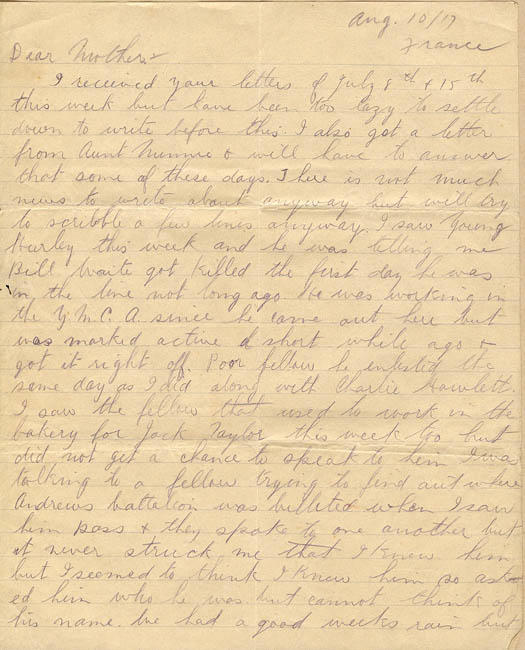 Aug. 10/17
France
Dear Mother:-
I received your letters of July 8th & 15th
this week but have been too lazy to settle
down to write before this. I also got a letter
from Aunt Minnie & will have to answer
that some of these days. There is not much
news to write about anyway but will try
to scribble a few lines anyway. I saw Young
Hurley this week and he was telling me
Bill Waite got killed the first day he was
in the line not long ago. He was working in
the Y.M.C.A. since he came out here but
was marked active a short while ago &
got it right off. Poor fellow he enlisted the
same day as I did along with Charlie Hawlett.
I saw the fellow that used to work in the
bakery for Jack Taylor this week too but
did not get a chance to speak to him I was
talking to a fellow trying to find out where
Andrews battalion was billited when I saw
him pass & they spoke to one another but
it never struck me that I knew him
but I seemed to think I knew him so ask-
ed him who he was but cannot think of
his name. We had a good weeks rain but